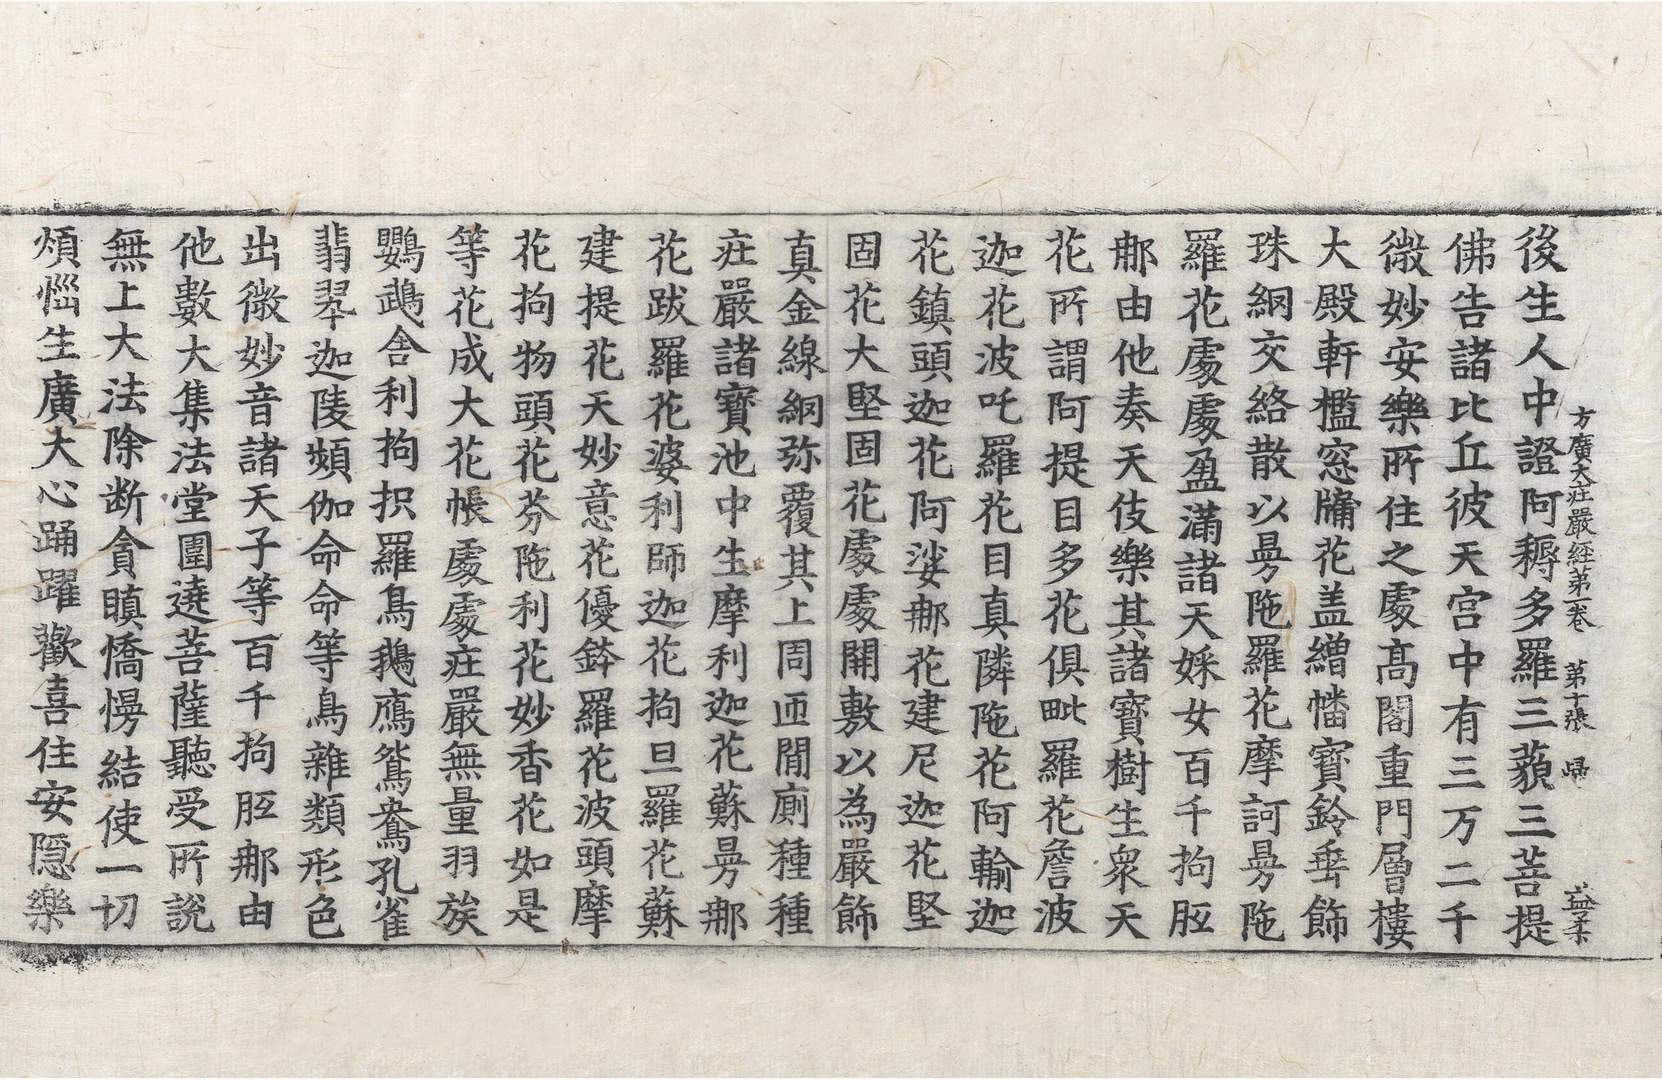 方廣大莊嚴經第一卷 第十張 歸 益柔
後生人中證阿耨多羅三藐三菩提
佛告諸比丘彼天宮中有三万二千
微妙安樂所住之處高閣重門層樓
大殿軒檻窓牖花盖繒幡寶鈴垂飾
珠網交絡散以曼陁羅花摩訶曼陁
羅花處處盈滿諸天婇女百千拘胝
那由他奏天伎樂其諸寶樹生衆天
花所謂阿提目多花俱毗羅花詹波
迦花波吒羅花目真隣陁花阿輸迦
花鎮頭迦花阿娑那花建尼迦花堅
固花大堅固花處處開敷以為嚴飾
真金線網弥覆其上周匝閒廁種種
莊嚴諸寶池中生摩利迦花蘇曼那
花跋羅花婆利師迦花拘旦羅花蘇
建提花天妙意花優鉢羅花波頭摩
花拘物頭花芬陁利花妙香花如是
等花成大花帳處處莊嚴無量羽族
鸚鵡舍利拘抧羅鳥鵝鴈鴛鴦孔雀
翡翠迦陵頻伽命命等鳥雜類形色
出微妙音諸天子等百千拘胝那由
他數大集法堂圍遶菩薩聽受所說
無上大法除断貪瞋憍慢結使一切
煩惱生廣大心踊躍歡喜住安隱樂